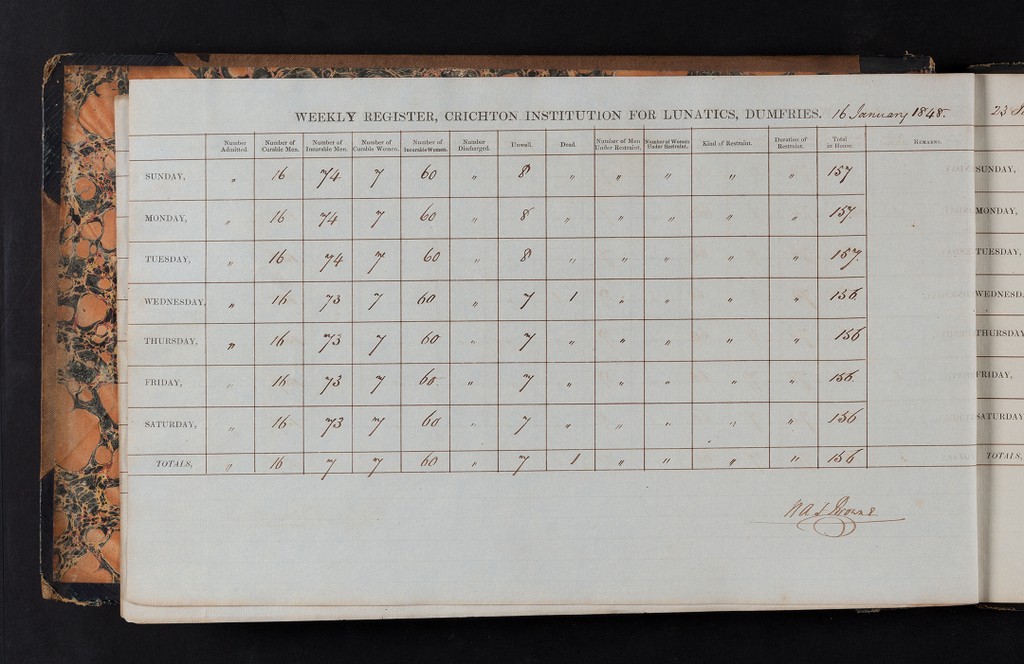 WEEKLY REGISTER, CRICHTON INSTITUTION FOR LUNATICS, DUMFRIES. 16 January 1848.
Number Admitted. Number of Curable Men. Number of Incurable Men. Number of Curable Women. Number of Incurable Women. Number Discharged. Unwell. Dead. Number of Men Under Restraint. Number of Women Under Restraint. Kind of Restraint. Duration of Restraint. Total in House. Remarks.
SUNDAY, " 16 74 7 60 " 8 " " " " " 157
MONDAY, " 16 74 7 60 " 8 " " " " " 157.
TUESDAY, " 16 74 7 60 " 8 " " " " " 157.
WEDNESDAY, " 16 73 7 60 " 7 1 " " " " 156.
THURSDAY, " 16 73 7 60 " 7 " " " " " 156
FRIDAY, " 16 73 7 60. " 7 " " " " " 156.
SATURDAY, " 16 73 7 60 " 7 " " " " " 156
TOTALS, " 16 7 7 60 " 7 1 " " " " 156
W A F Browne
23
SUNDAY,
MONDAY,
TUESDAY,
WEDNESD
THURSDAY
FRIDAY,
SATURDAY
TOTALS,